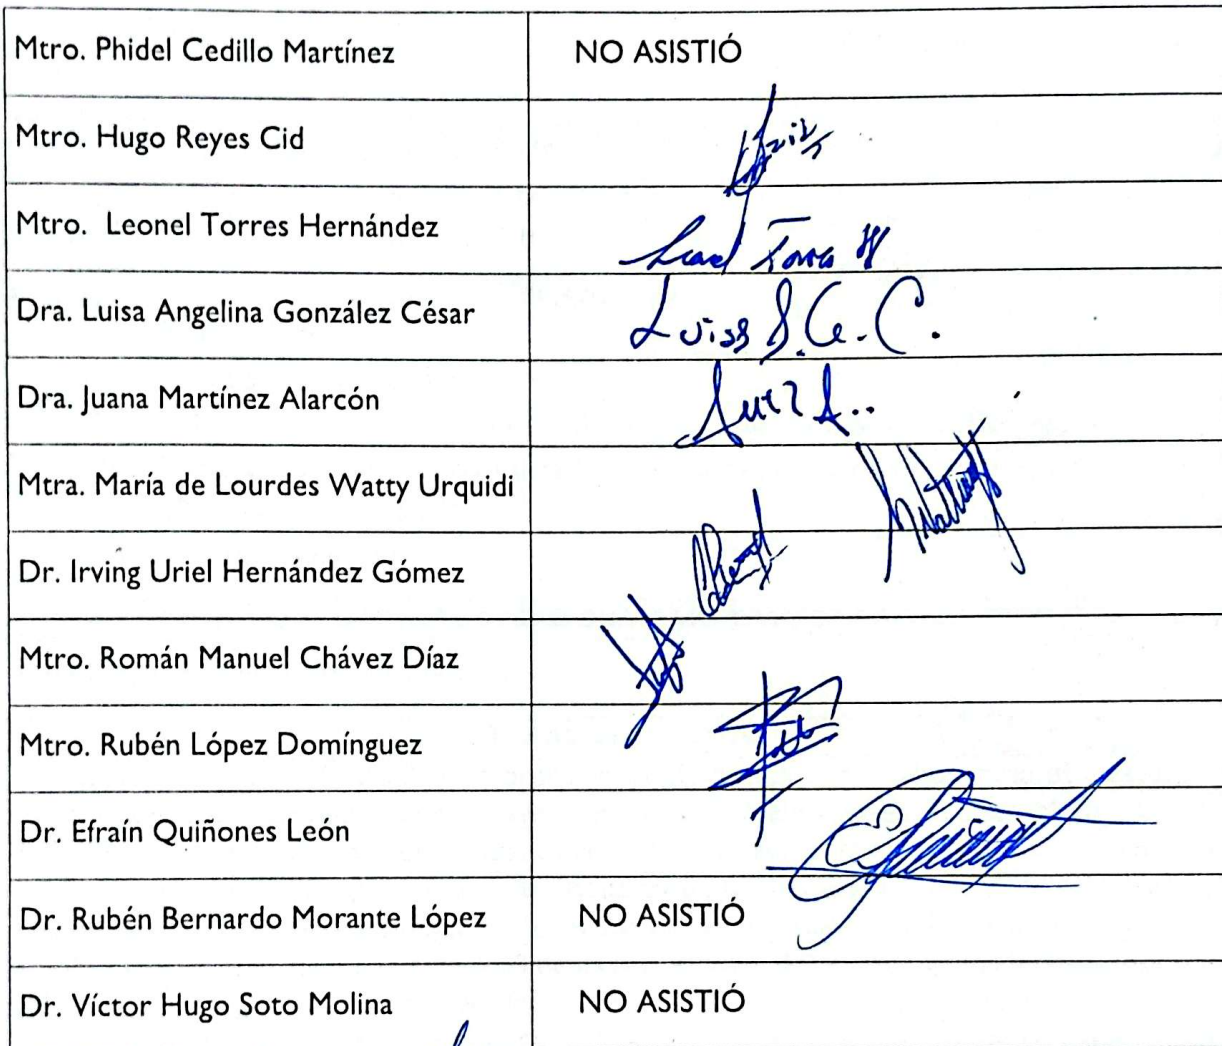 Mtro. Phidel Cedillo Martínez NO ASISTIÓ
Mtro. Hugo Reyes Cid
Mtro. Leonel Torres Hernández
Dra. Luisa Angelina González César
Dra. Juana Martínez Alarcón
Mtra. María de Lourdes Watty Urquidi
Dr. Irving Uriel Hernández Gómez
Mtro. Román Manuel Chávez Díaz
Mtro. Rubén López Domínguez
Dr. Efraín Quiñones León
Dr. Rubén Bernardo Morante López NO ASISTIÓ
Dr. Víctor Hugo Soto Molina NO ASISTIÓ